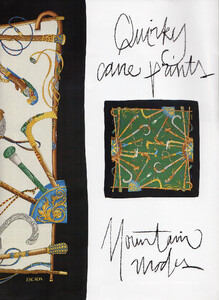 Quirky
cane prints
Mountain
modes